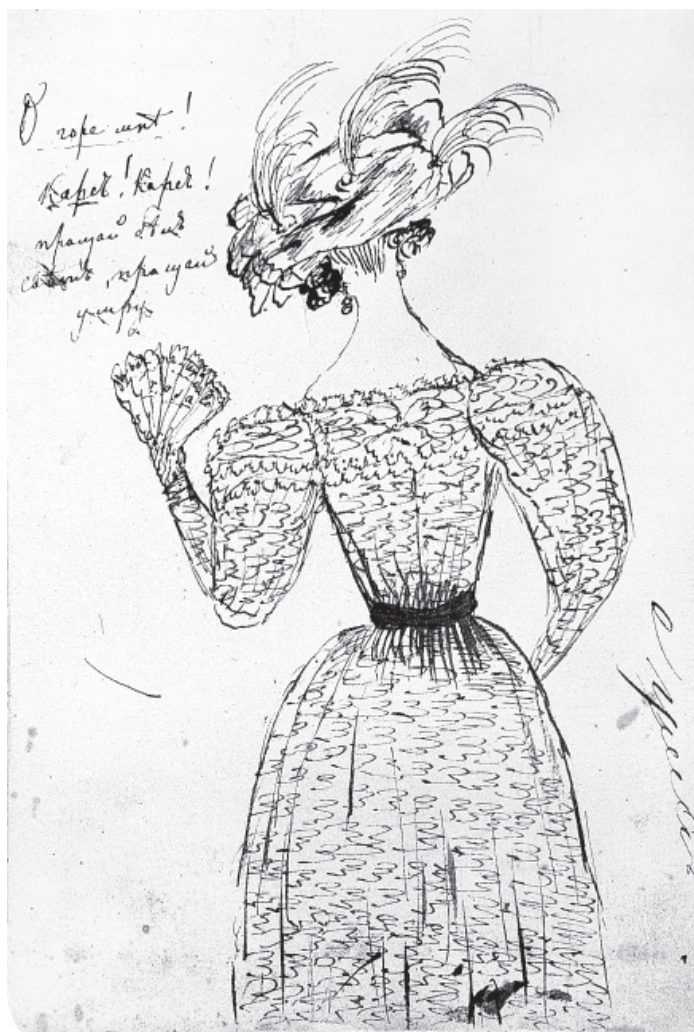 О горе мнѣ!
Карлъ! Карлъ!
прощай бѣлъ
свѣтъ, прощай
умру